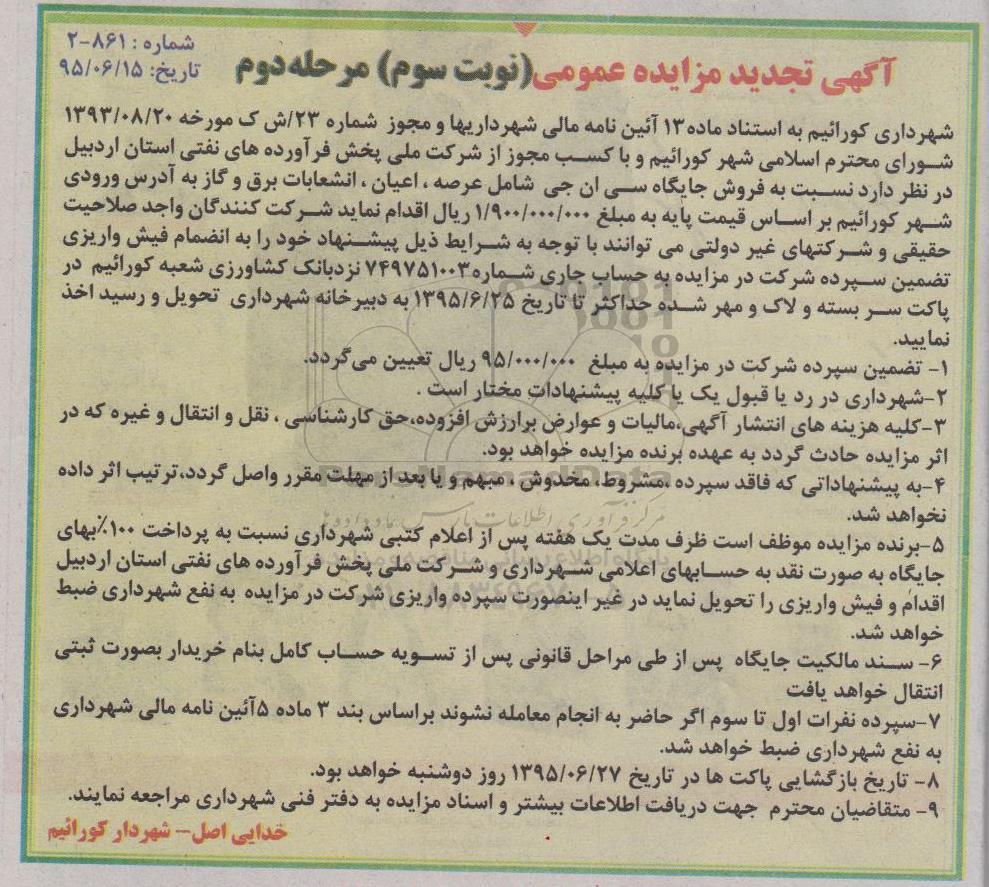 شماره : ۸۶۱-۲
تاریخ: ۹۵/۰۶/۱۵
آگهی تجدید مزایده عمومی(نوبت سوم) مرحله دوم
شهرداری کورائیم به استناد ماده۱۳ آئین نامه مالی شهرداریها و مجوز شماره ۲۳/ش ک مورخه ۱۳۹۳/۰۸/۲۰
شورای محترم اسلامی شهر کورائیم و با کسب مجوز از شرکت ملی پخش فرآورده های نفتی استان اردبیل
در نظر دارد نسبت به فروش جایگاه سی ان جی شامل عرصه ، اعیان ، انشعابات برق و گاز به آدرس ورودی
شهر کورائیم بر اساس قیمت پایه به مبلغ ۱/۹۰۰/۰۰۰/۰۰۰ ریال اقدام نماید شرکت کنندگان واجد صلاحیت
حقیقی و شرکتهای غیر دولتی می توانند با توجه به شرایط ذیل پیشنهاد خود را به انضمام فیش واریزی
تضمین سپرده شرکت در مزایده به حساب جاری شماره۷۴۹۷۵۱۰۰۳ نزدبانک کشاورزی شعبه کورائیم در
پاکت سر بسته و لاک و مهر شده حداکثر تا تاریخ ۱۳۹۵/۶/۲۵ به دبیرخانه شهرداری تحویل و رسید اخذ
نمایید.
۱- تضمین سپرده شرکت در مزایده به مبلغ ۹۵/۰۰۰/۰۰۰ ریال تعیین می‌گردد.
۲-شهرداری در رد یا قبول یک یا کلیه پیشنهادات مختار است .
۳-کلیه هزینه های انتشار آگهی،مالیات و عوارض برارزش افزوده،حق کارشناسی ، نقل و انتقال و غیره که در
اثر مزایده حادث گردد به عهده برنده مزایده خواهد بود.
۴-به پیشنهاداتی که فاقد سپرده ،مشروط، مخدوش ، مبهم و یا بعد از مهلت مقرر واصل گردد،ترتیب اثر داده
نخواهد شد.
۵-برنده مزایده موظف است ظرف مدت یک هفته پس از اعلام کتبی شهرداری نسبت به پرداخت ۱۰۰٪بهای
جایگاه به صورت نقد به حسابهای اعلامی شهرداری و شرکت ملی پخش فرآورده های نفتی استان اردبیل
اقدام و فیش واریزی را تحویل نماید در غیر اینصورت سپرده واریزی شرکت در مزایده به نفع شهرداری ضبط
خواهد شد.
۶- سند مالکیت جایگاه پس از طی مراحل قانونی پس از تسویه حساب کامل بنام خریدار بصورت ثبتی
انتقال خواهد یافت
۷-سپرده نفرات اول تا سوم اگر حاضر به انجام معامله نشوند براساس بند ۳ ماده ۵آئین نامه مالی شهرداری
به نفع شهرداری ضبط خواهد شد.
۸- تاریخ بازگشایی پاکت ها در تاریخ ۱۳۹۵/۰۶/۲۷ روز دوشنبه خواهد بود.
۹- متقاضیان محترم جهت دریافت اطلاعات بیشتر و اسناد مزایده به دفتر فنی شهرداری مراجعه نمایند.
خدایی اصل- شهردار کورائیم